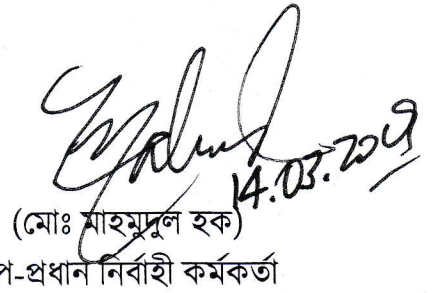 14.03.2019
(মোঃ মাহমুদুল হক)
প-প্রধান নির্বাহী কর্মকর্তা